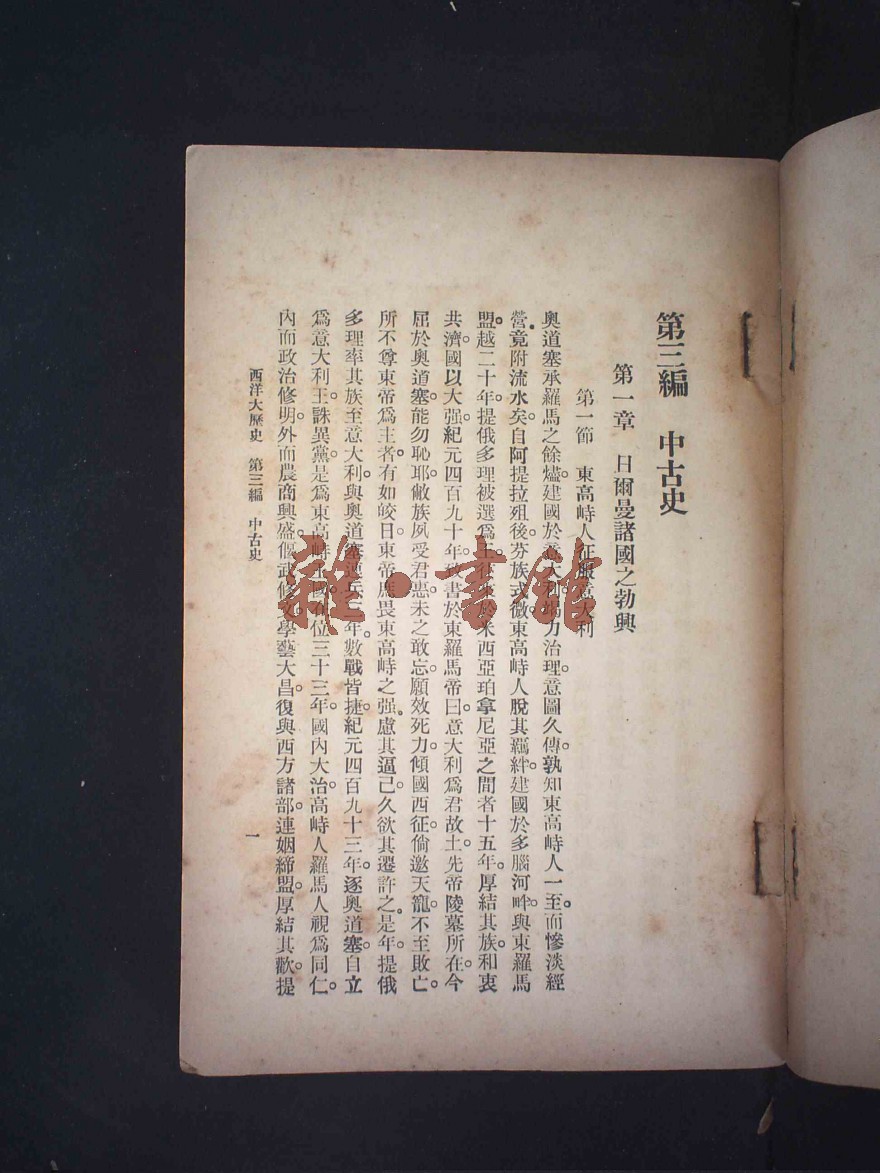 第三編　中古史
第一章　日爾曼諸國之勃興
第一節　東高峙人征服意大利
奧道塞承羅馬之餘燼。建國於意大利。竭力治理。意圖久傳。孰知東高峙人一至。而慘淡經
營。竟附流水矣。自阿提拉殂後。芬族式微。東高峙人脫其羈絆。建國於多腦河畔。與東羅馬
盟。越二十年。提俄多理被選爲王。往來於米西亞珀拿尼亞之間者十五年。厚結其族。和衷
共濟。國以大强。紀元四百九十年。致書於東羅馬帝曰。意大利爲君故土。先帝陵墓所在。今
屈於奧道塞。能勿恥耶。敝族夙受君惠。未之敢忘。願效死力。傾國西征。倘邀天寵。不至敗亡。
所不尊東帝爲主者。有如皎日。東帝應畏東高峙之强。慮其逼己。久欲其遷。許之。是年。提俄
多理率其族至意大利。與奧道塞連兵三年。數戰皆捷。紀元四百九十三年。逐奧道塞。自立
爲意大利王。誅異黨。是爲東高峙王國。在位三十三年。國內大治。高峙人羅馬人視爲同仁。
內而政治修明。外而農商興盛。偃武修文。學藝大昌。復與西方諸部。連姻締盟。厚結其歡。提
西洋大歷史　第三編　中古史
一
雜·書館